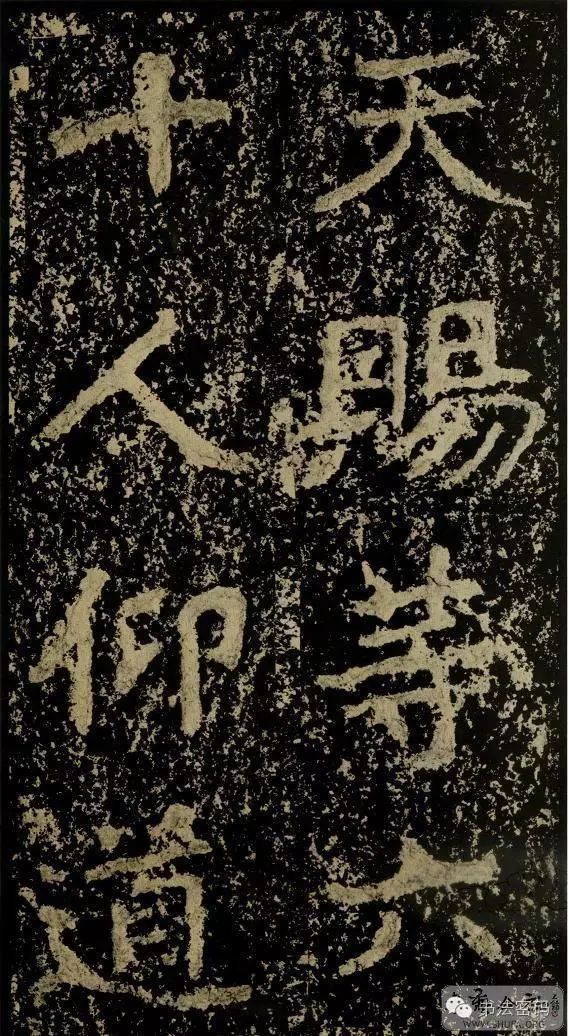 天賜等六
十人仰道
书法密码
WWW.9SHUFA.ORG